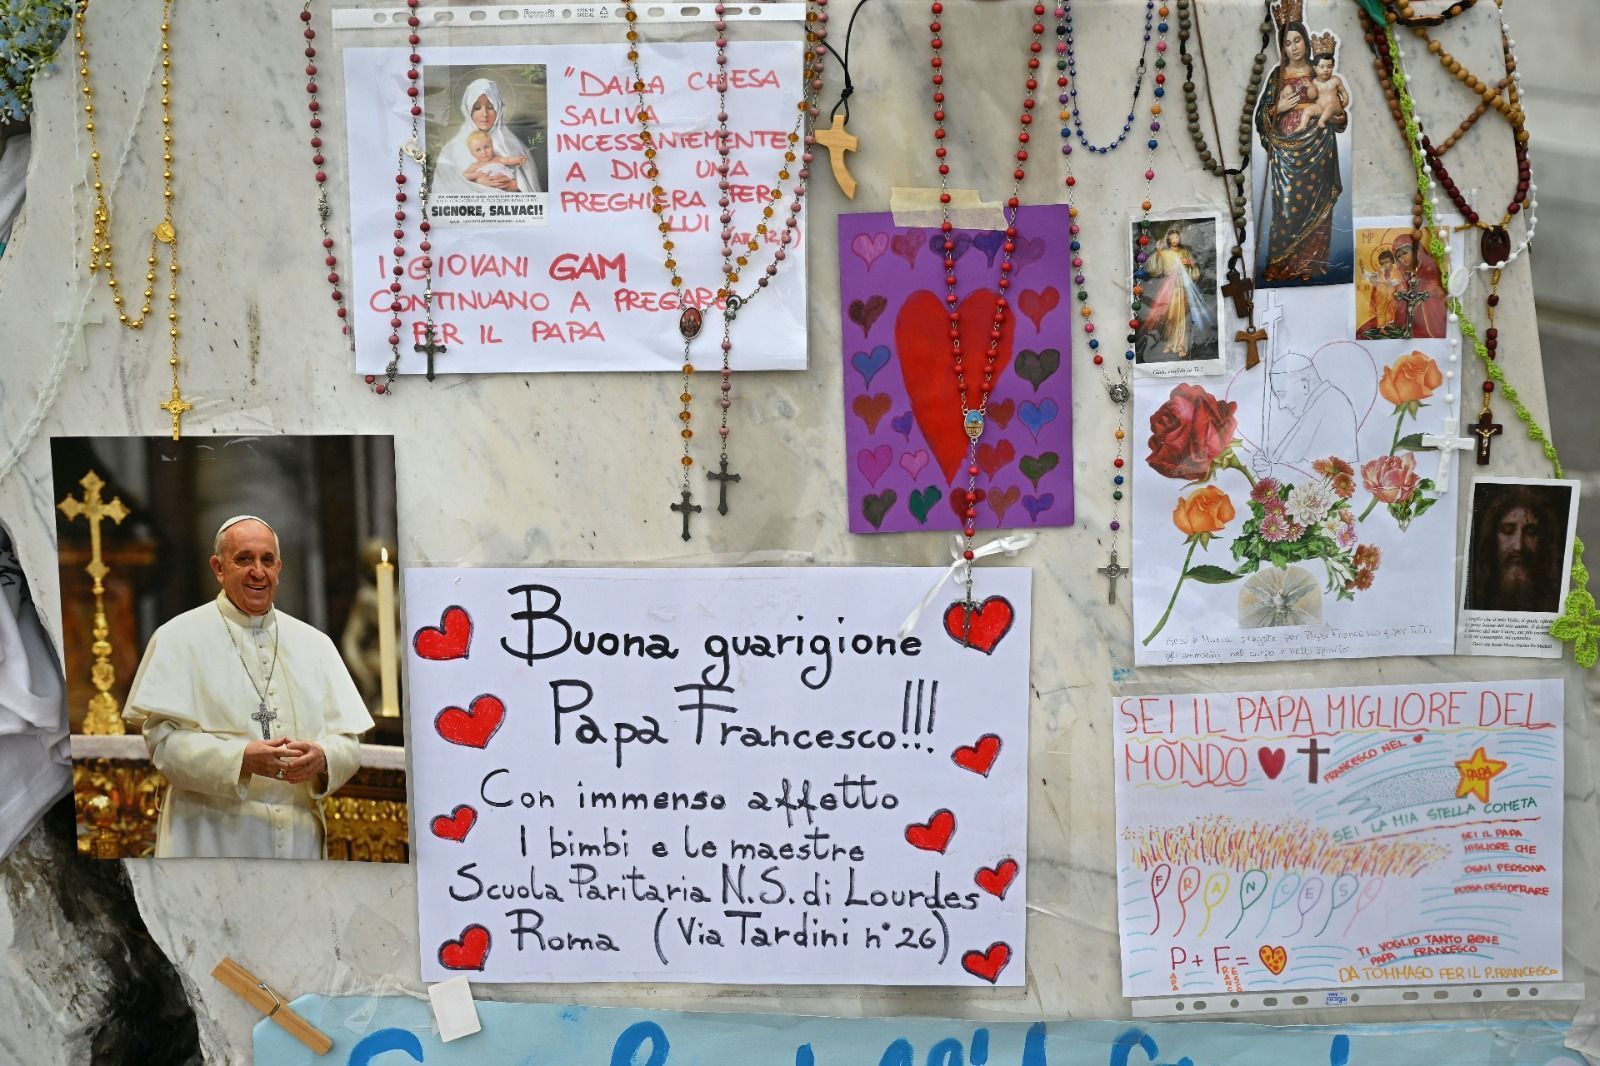 Favorit
SPECIAL
"DALLA CHIESA
SALIVA
INCESSANTEMENTE
A DIO UNA
PREGHIERA PER
LUI
SIGNORE, SALVACI!
I GIOVANI GAM
CONTINUANO A PREGARE
PER IL PAPA
MP
Gesù, confido in Te!
Buona guarigione
Papa Francesco!!!
Con immenso affetto
I bimbi e le maestre
Scuola Paritaria N.S. di Lourdes
Roma (Via Tardini n° 26)
Gesù e Maria pregate per Papa Francesco e per Tutti
gli ammalati nel corpo e nello spirito
SEI IL PAPA MIGLIORE DEL
MONDO
FRANCESCO NEL
PAPA
SEI LA MIA STELLA COMETA
SEI IL PAPA
MIGLIORE CHE
OGNI PERSONA
POSSA DESIDERARE
FRANCESC
P + F =
APA
RANCESCO
TI VOGLIO TANTO BENE
PAPA FRANCESCO
DA TOMMASO PER IL P. FRANCESCO